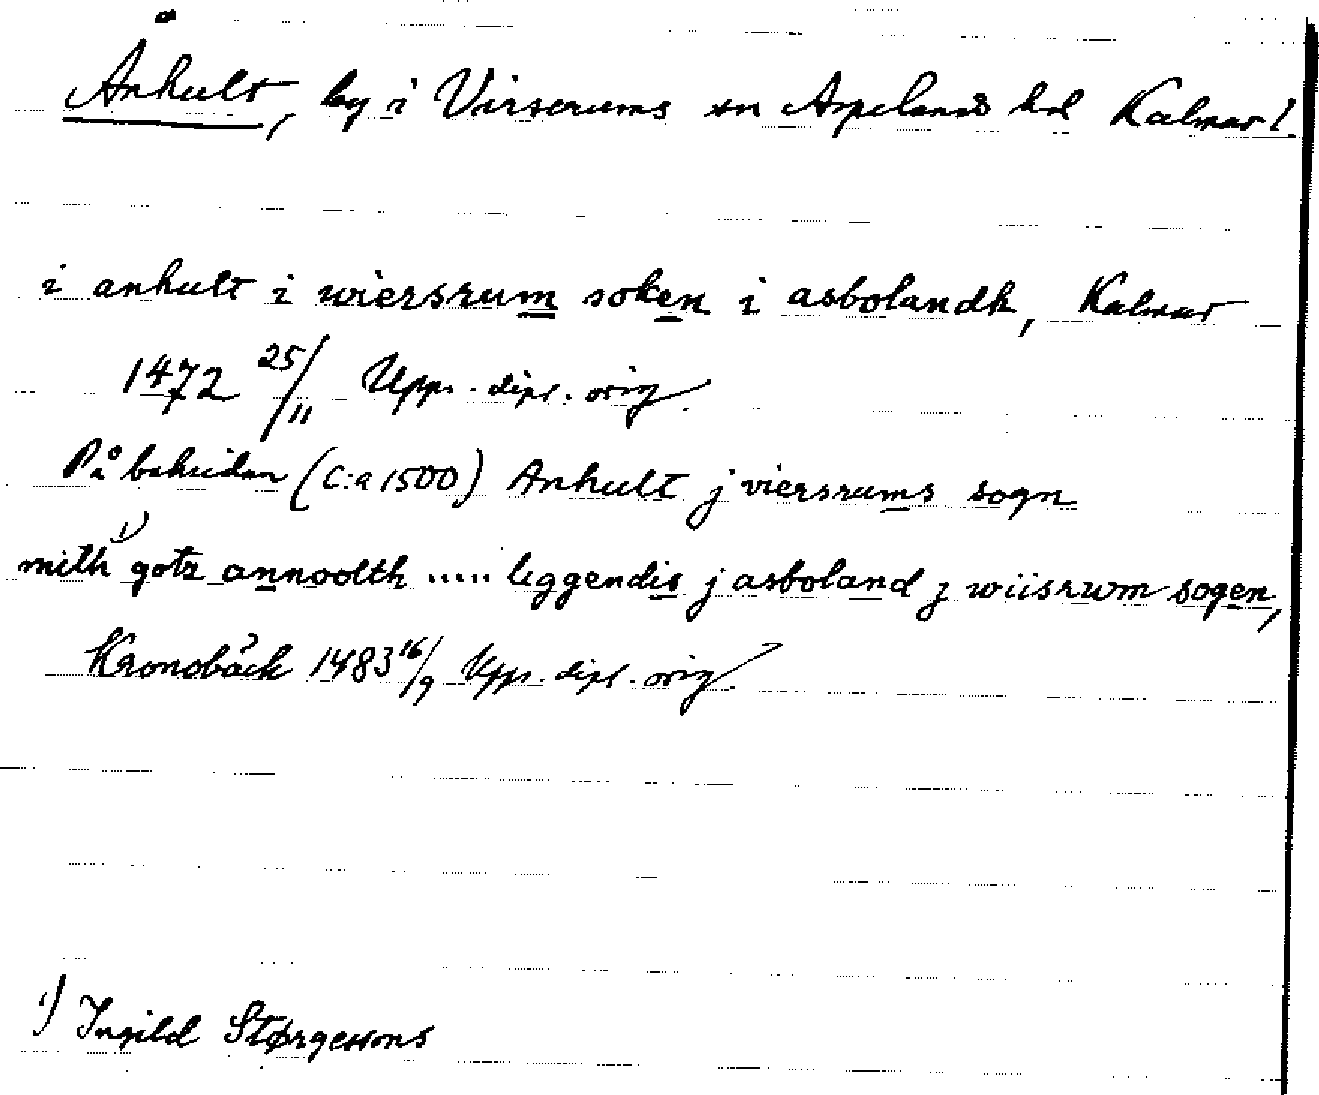 Ånhult, by i Virserums sn Aspelands hd Kalmar l.
i anhult i wiersrum soken i asbolandh, Kalmar
1472 25/11 Upps. dipl. orig.
På baksidan (c:a 1500) Anhult j viersrums sogn
mith 1) gotz annoolth ..... leggendis j asboland j wiisrwm sogen,
Kronobäck 1483 16/9 Upps. dipl. orig.
1) Ingild Størgessons